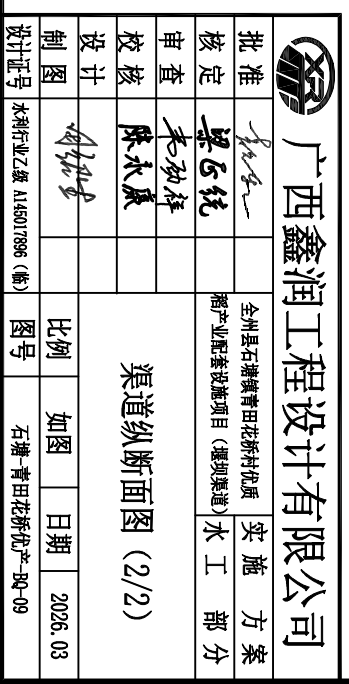 XR
广西鑫润工程设计有限公司
批准
核定 梁正统
审查
校核 陈永康
设计
制图
设计证号 水利行业乙级 A145017896（临）
全州县石塘镇青田花桥村优质
稻产业配套设施项目（堰坝渠道）
实施 方案
水工 部分
渠道纵断面图（2/2）
比例 如图 日期 2026.03
图号 石塘-青田花桥优产-BQ-09